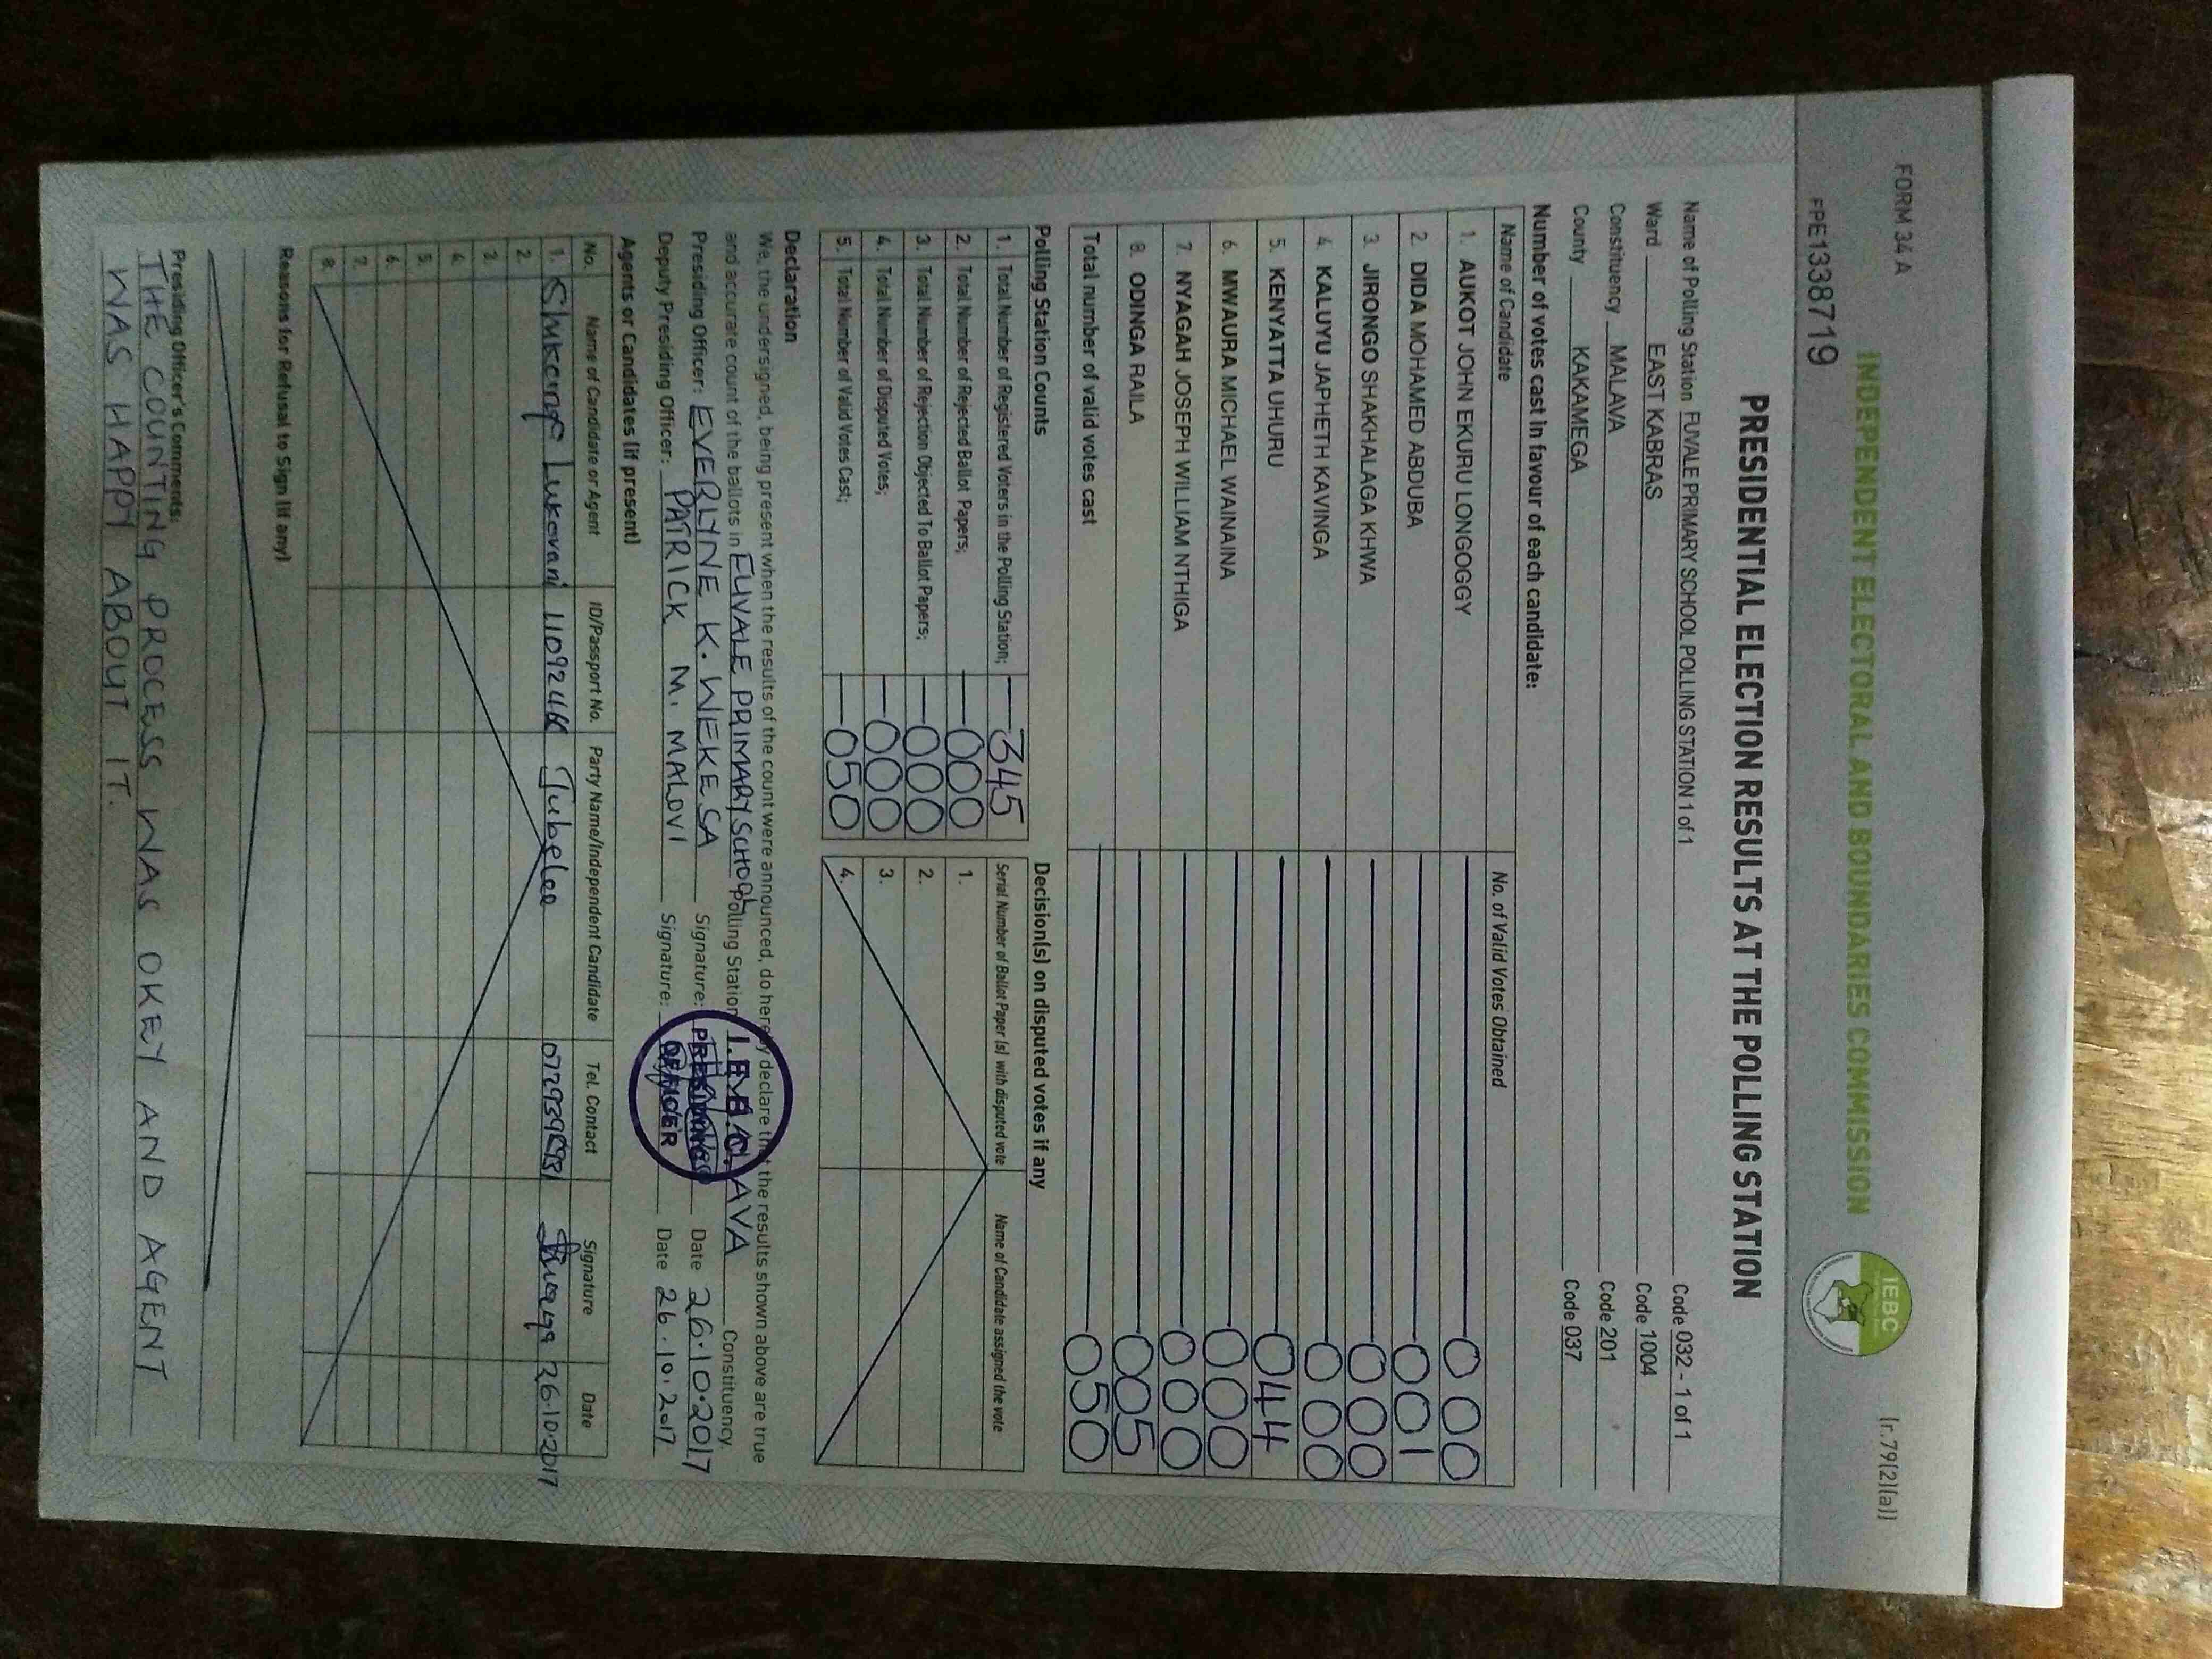 FORM 34 A
(r.79(2)(a))
INDEPENDENT ELECTORAL AND BOUNDARIES COMMISSION
IEBC
FPE1338719
PRESIDENTIAL ELECTION RESULTS AT THE POLLING STATION
Name of Polling Station FUVALE PRIMARY SCHOOL POLLING STATION 1 of 1 Code 032 - 1 of 1
Ward EAST KABRAS Code 1004
Constituency MALAVA Code 201
County KAKAMEGA Code 037
Number of votes cast in favour of each candidate:
Name of Candidate No. of Valid Votes Obtained
1. AUKOT JOHN EKURU LONGOGGY 000
2. DIDA MOHAMED ABDUBA 001
3. JIRONGO SHAKHALAGA KHWA 000
4. KALUYU JAPHETH KAVINGA 000
5. KENYATTA UHURU 044
6. MWAURA MICHAEL WAINAINA 000
7. NYAGAH JOSEPH WILLIAM NTHIGA 000
8. ODINGA RAILA 005
Total number of valid votes cast 050
Polling Station Counts Decision(s) on disputed votes if any
1. Total Number of Registered Voters in the Polling Station; 345 Serial Number of Ballot Paper (s) with disputed vote Name of Candidate assigned the vote
2. Total Number of Rejected Ballot Papers; 000 1.
3. Total Number of Rejection Objected To Ballot Papers; 000 2.
4. Total Number of Disputed Votes; 000 3.
5. Total Number of Valid Votes Cast; 050 4.
Declaration
We, the undersigned, being present when the results of the count were announced, do hereby declare that the results shown above are true
and accurate count of the ballots in FUVALE PRIMARY SCHOOL Polling Station AVA Constituency.
Presiding Officer: EVERLYNE K. WEKESA Signature: Date 26.10.2017
Deputy Presiding Officer: PATRICK M. MALOVI Signature: Date 26.10.2017
I.E.B.C.
PRESIDING
OFFICER
Agents or Candidates (if present)
No. Name of Candidate or Agent ID/Passport No. Party Name/Independent Candidate Tel. Contact Signature Date
1. Jubelee 26.10.2017
2.
3.
4.
5.
6.
7.
8.
Reasons for Refusal to Sign (if any)
Presiding Officer's Comments:
THE COUNTING PROCESS WAS OKEY AND AGENT
WAS HAPPY ABOUT IT.